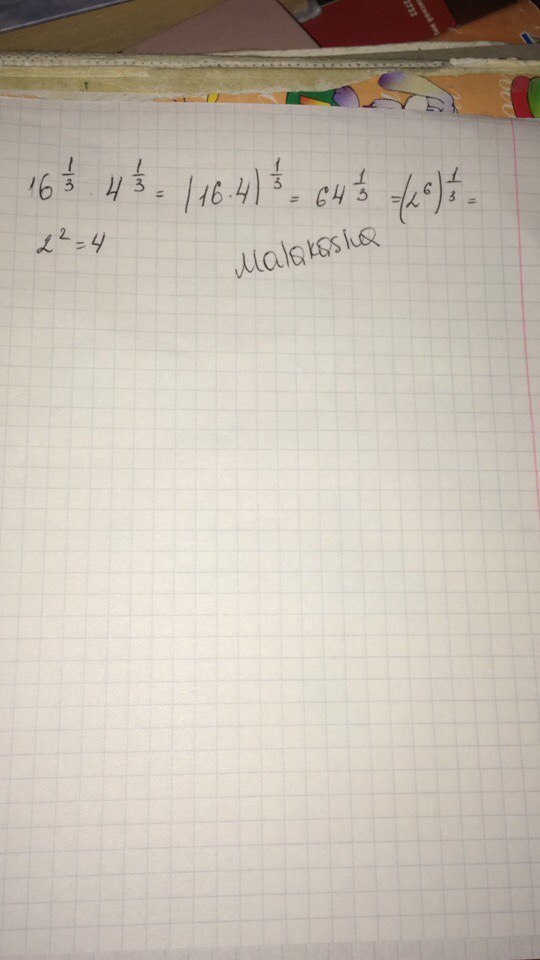 2722
16^{\frac{1}{3}} · 4^{\frac{1}{3}} = (16·4)^{\frac{1}{3}} = 64^{\frac{1}{3}} = (2^6)^{\frac{1}{3}} =
2^2 = 4
Malakosha